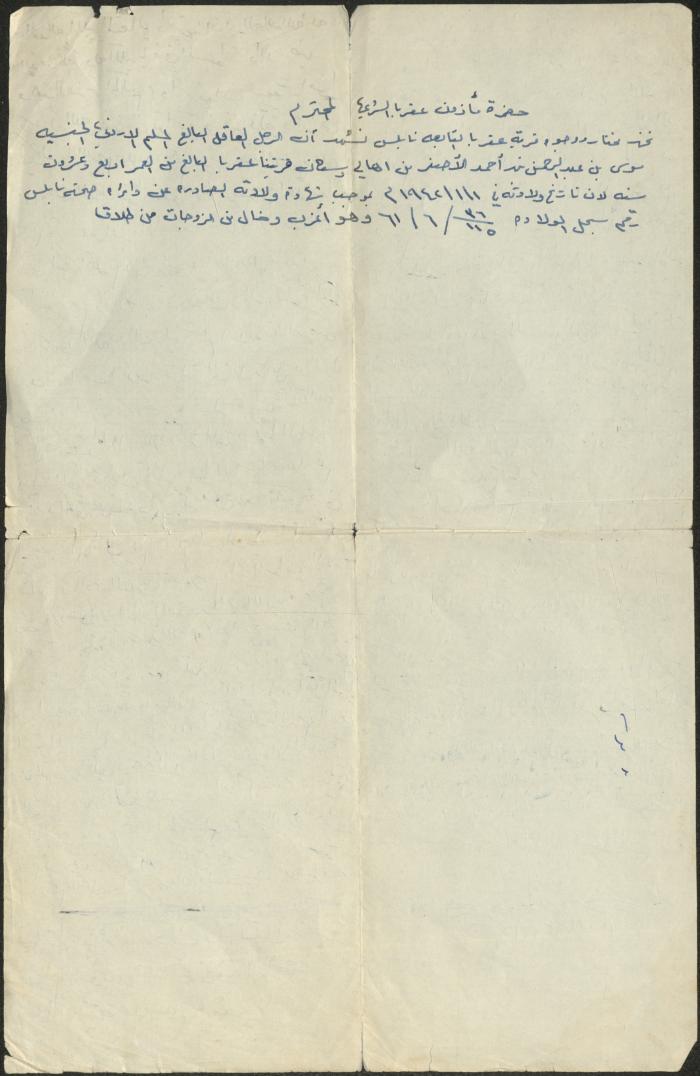 حضرة مأذون عقربا الشرعي المحترم
نحن مختار ووجوه قرية عقربا التابعه نابلس نشهد أن الرجل العاقل البالغ المسلم الاردني الجنسيه
موسى بن عبد الرحمن بن أحمد الأصغر من اهالي وسكان قريتنا عقربا البالغ من العمر اربع وعشرون
سنه لان تاريخ ولادته في ١٩٤٢/١/١١ م بموجب شهادة ولادته الصادره عن دائرة صحة نابلس
رقم سجل الولاده ٣٦/١١٥ / ٦ / ٦١ وهو أعزب وخال من الزوجات من طلاق